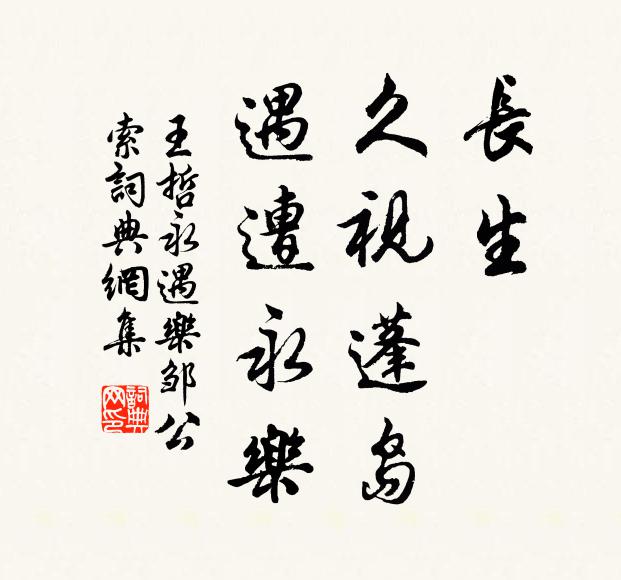 長生
久視蓬島
遇遭永樂
王哲永遇樂邹公
索詞典網集
詞典網印